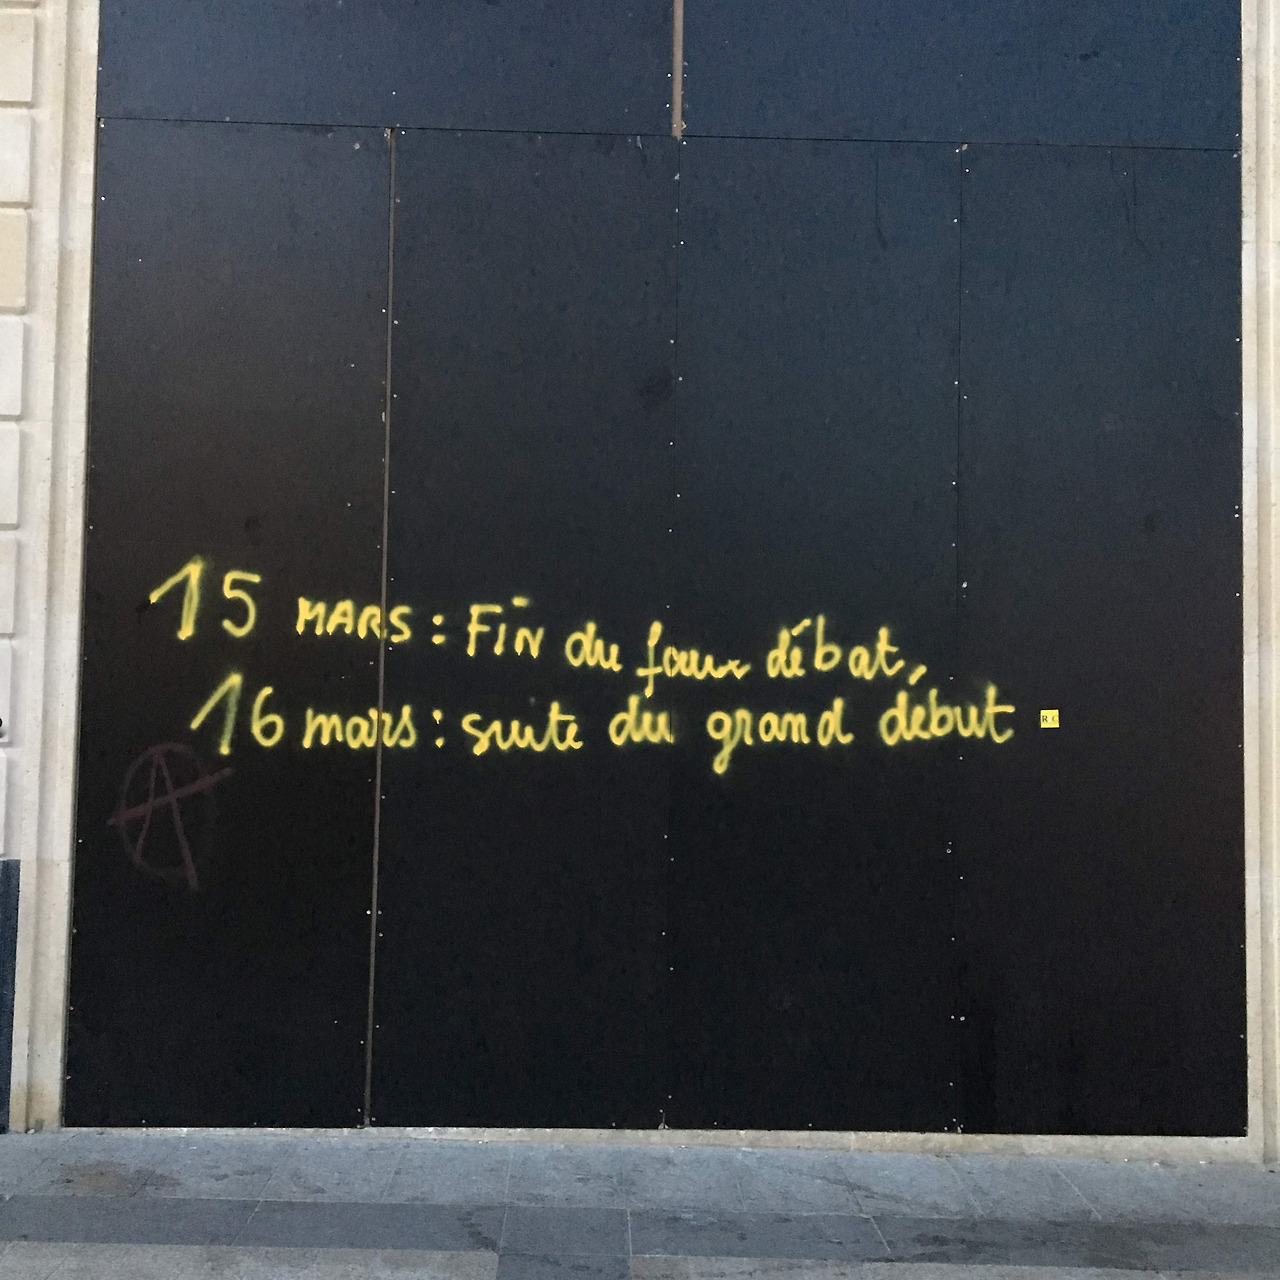 15 MARS : FIN du faux débat,
16 mars : suite du grand début
A